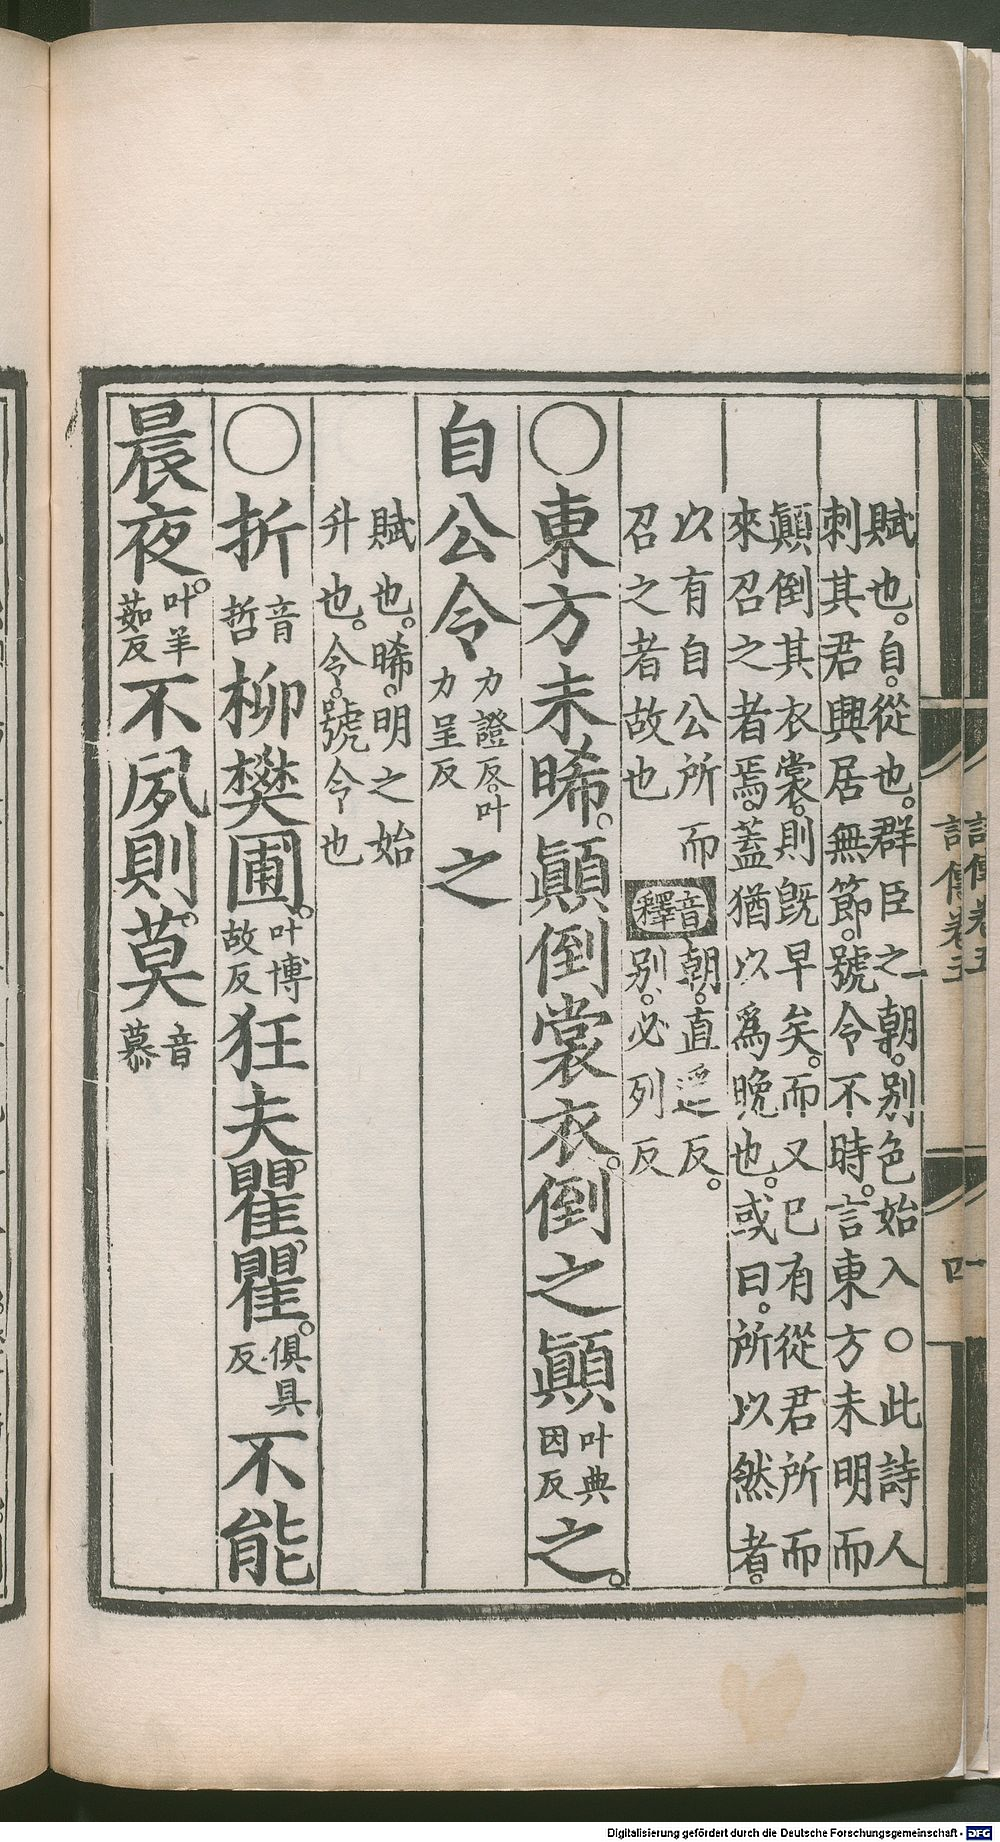 賦也。自。從也。群臣之朝。别色始入○此詩人
刺其君興居無節。號令不時。言東方未明而
顛倒其衣裳。則既早矣。而又已有從君所而
來召之者焉。蓋猶以爲晚也。或曰。所以然者。
以有自公所而
召之者故也
音釋
朝。直遥反。
别。必列反
○東方未晞。顛倒裳衣。倒之顛叶典因反之。
自公令力證反。叶力呈反之
賦也。晞。明之始
升也。令。號令也
○折音哲柳樊圃。叶博故反狂夫瞿瞿。俱具反不能
晨夜。叶羊茹反不夙則莫。音慕
Digitalisierung gefördert durch die Deutsche Forschungsgemeinschaft - DFG